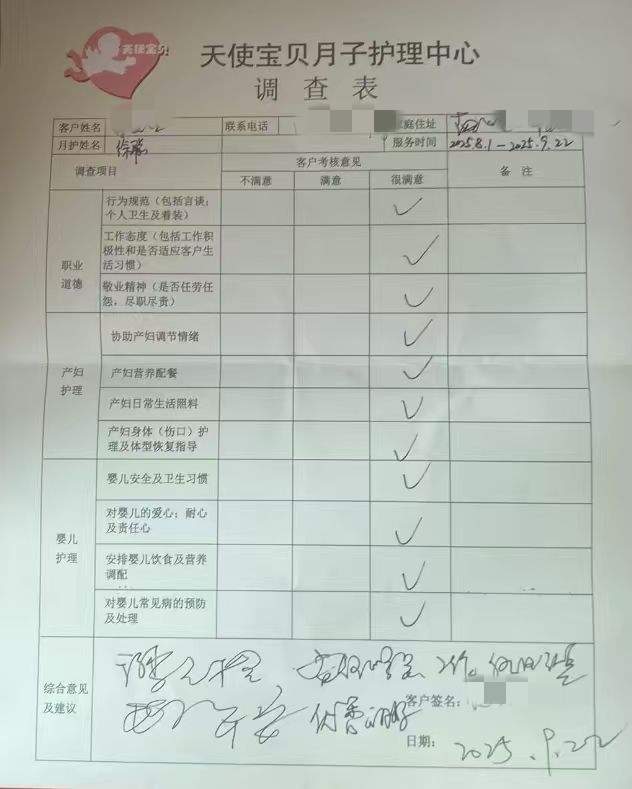 天使宝贝
天使宝贝月子护理中心
调查表
客户姓名 联系电话 庭住址
月护姓名 徐瑞 服务时间 2025.8.1-2025.9.22
调查项目 客户考核意见 备注
不满意 满意 很满意
职业道德
行为规范(包括言谈;
个人卫生及着装) ✓
工作态度(包括工作积
极性和是否适应客户生
活习惯) ✓
敬业精神(是否任劳任
怨,尽职尽责) ✓
产妇护理
协助产妇调节情绪 ✓
产妇营养配餐 ✓
产妇日常生活照料 ✓
产妇身体(伤口)护
理及体型恢复指导 ✓
婴儿护理
婴儿安全及卫生习惯 ✓
对婴儿的爱心;耐心
及责任心 ✓
安排婴儿饮食及营养
调配 ✓
对婴儿常见病的预防
及处理 ✓
综合意见
及建议
客户签名:
日期: 2025.9.22